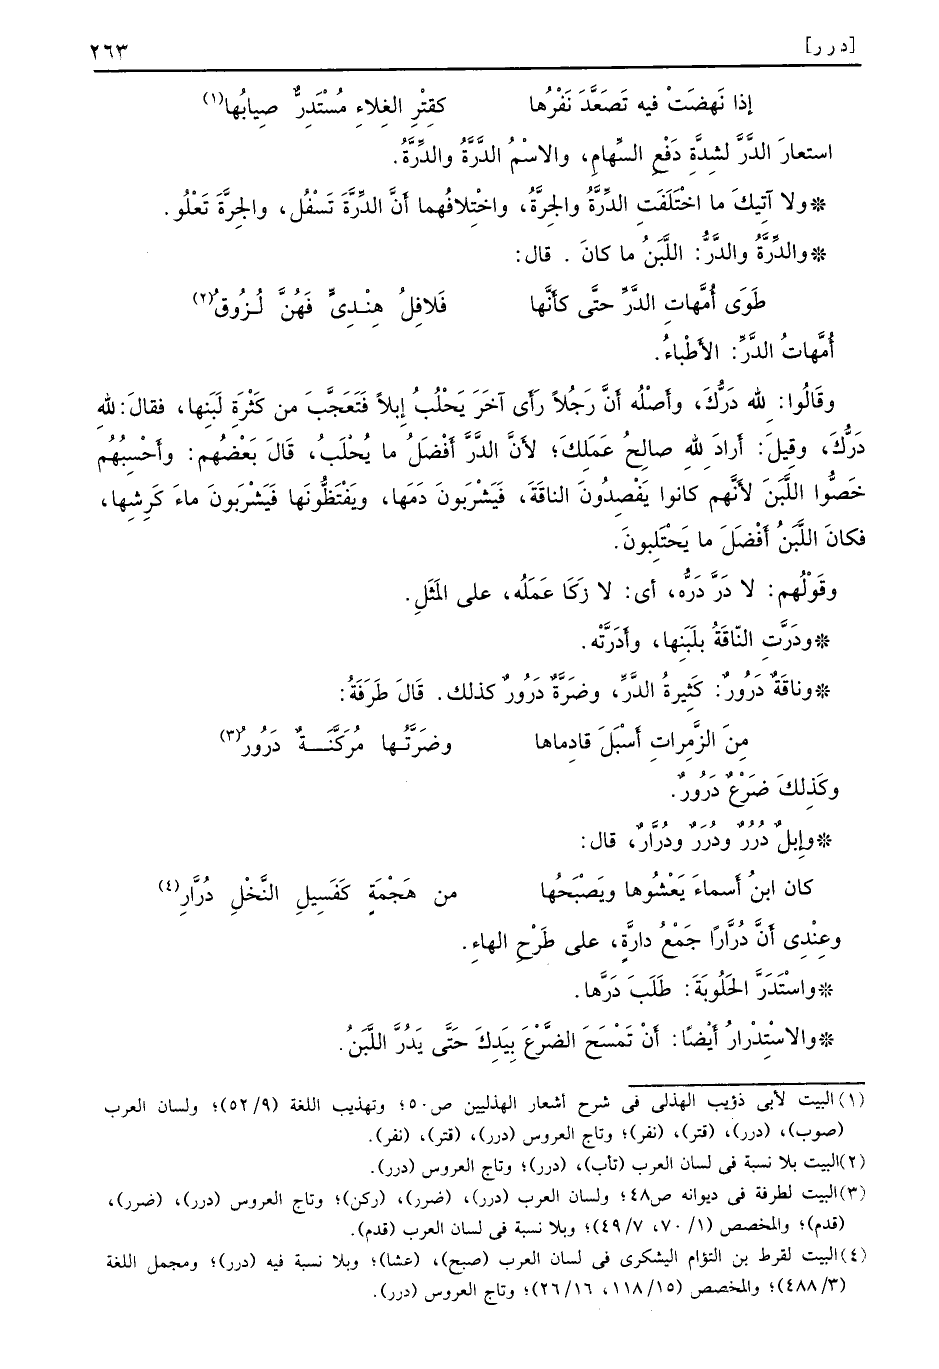 [درر] ٢٦٣
إذا نَهضَتْ فيه تَصَعَّدَ نَفْرُها كقِتْرِ الغِلاءِ مُسْتَدِرٌّ صِيابُها(١)
استعارَ الدَّرَّ لشدَّةِ دَفْعِ السِّهامِ، والاسْمُ الدَّرَّةُ والدِّرَّةُ.
*ولا آتيكَ ما اخْتَلَفَتِ الدِّرَّةُ والجِرَّةُ، واخْتِلافُهما أنَّ الدِّرَّةَ تَسْفُل، والجِرَّةَ تَعْلُو.
*والدِّرَّةُ والدَّرُّ: اللبَنُ ما كانَ . قال:
طَوَى أُمَّهاتِ الدَّرِّ حتَّى كأنَّها فَلافِلُ هِنْدِىٍّ فَهُنَّ لُزُوقُ(٢)
أُمَّهاتُ الدَّرِّ: الأَطْباءُ.
وقَالُوا: للهِ دَرُّكَ، وأصْلُه أنَّ رَجُلاً رأى آخَرَ يَحْلُبُ إبلاً فَتَعَجَّبَ من كَثْرَةِ لَبَنِها، فقالَ: للهِ
دَرُّكَ، وقيلَ: أرادَ للهِ صالِحُ عَمَلِكَ؛ لأنَّ الدَّرَّ أفْضَلُ ما يُحْلَبُ، قَالَ بَعْضُهم: وأَحْسِبُهُم
خَصُّوا اللَّبَنَ لأنَّهم كانوا يَفْصِدُونَ الناقَةَ، فَيَشْرَبونَ دَمَها، ويَفْتَظُّونَها فَيَشْرَبونَ ماءَ كَرِشِها،
فكانَ اللَّبَنُ أفْضَلَ ما يَحْتَلِبونَ.
وقَوْلُهم: لا دَرَّ دَرُّه، أى: لا زَكَا عَمَلُه، على المَثَلِ.
*ودَرَّتِ النّاقَةُ بلَبَنِها، وأدَرَّتْه.
*وناقَةٌ دَرُورٌ: كَثِيرةُ الدَّرِّ، وضَرَّةٌ دَرُورٌ كذلك. قَالَ طَرَفَةُ:
مِنَ الزَّمِراتِ أسْبَلَ قادِماها وضَرَّتُها مُرَكَّنَةٌ دَرُورُ(٣)
وكَذلكَ ضَرْعٌ دَرُورٌ.
*وإبلٌ دُرُرٌ ودُرَرٌ ودُرَّارٌ، قال:
كان ابنُ أسماءَ يَعْشُوها ويَصْبَحُها من هَجْمَةٍ كَفَسِيلِ النَّخْلِ دُرَّارِ(٤)
وعِنْدِى أنَّ دُرَّارًا جَمْعُ دارَّةٍ، على طَرْحِ الهاءِ.
*واسْتَدَرَّ الحَلُوبَةَ: طَلَبَ دَرَّها.
*والاسْتِدْرارُ أيْضًا: أنْ تَمْسَحَ الضَّرْعَ بِيَدِكَ حَتَّى يَدُرَّ اللَّبَنُ.
(١) البيت لأبى ذؤيب الهذلى فى شرح أشعار الهذليين ص٥٠؛ وتهذيب اللغة (٥٢/٩)؛ ولسان العرب
(صوب)، (درر)، (قتر)، (نفر)؛ وتاج العروس (درر)، (قتر)، (نفر).
(٢) البيت بلا نسبة فى لسان العرب (تأب)، (درر)؛ وتاج العروس (درر).
(٣) البيت لطرفة فى ديوانه ص٤٨؛ ولسان العرب (درر)، (ضرر)، (ركن)؛ وتاج العروس (درر)، (ضرر)،
(قدم)؛ والمخصص (١/ ٧٠، ٤٩/٧)؛ وبلا نسبة فى لسان العرب (قدم).
(٤) البيت لقرط بن التؤام اليشكرى فى لسان العرب (صبح)، (عشا)؛ وبلا نسبة فيه (درر)؛ ومجمل اللغة
(٤٨٨/٣)؛ والمخصص (١١٨/١٥، ٢٦/١٦)؛ وتاج العروس (درر).